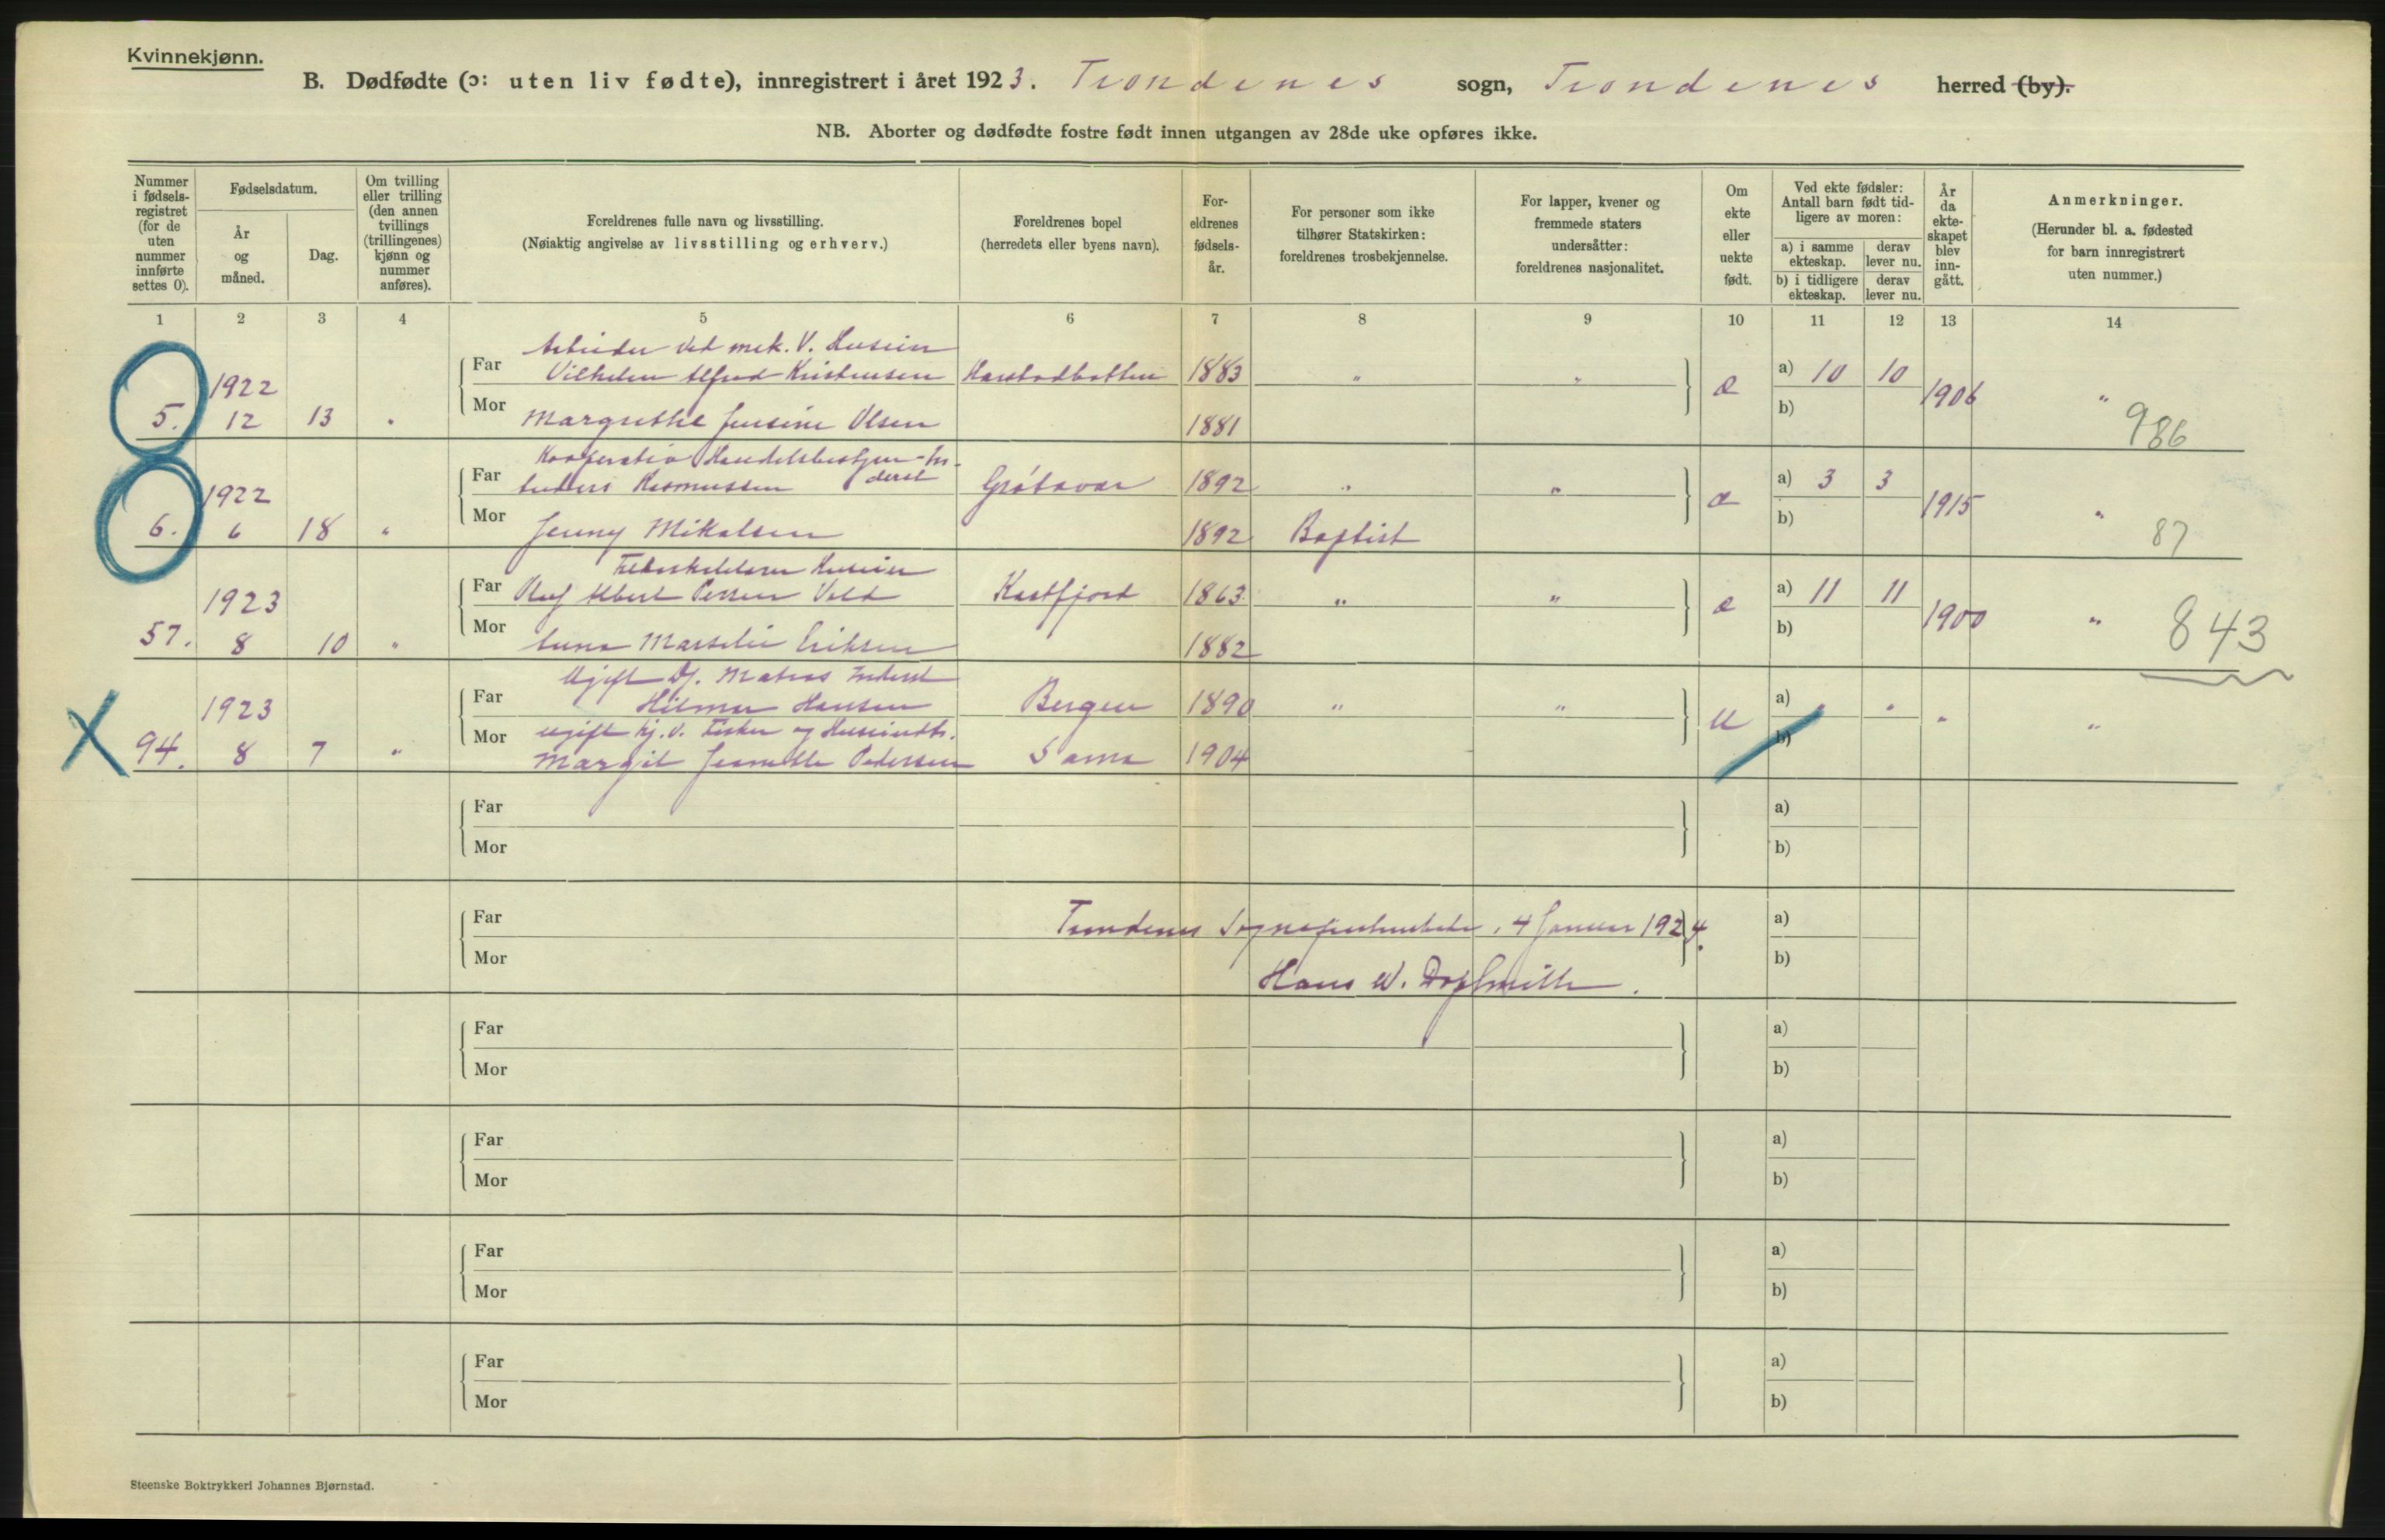 Kvinnekjønn.
B. Dødfødte (ɔ: uten liv fødte), innregistrert i året 1923. Trondenes sogn, Trondenes herred (by).
NB. Aborter og dødfødte fostre født innen utgangen av 28de uke opføres ikke.
Nummer i fødsels-registret (for de uten nummer innførte settes 0).
Fødselsdatum.
År og måned.
Dag.
Om tvilling eller trilling (den annen tvillings (trillingenes) kjønn og nummer anføres).
Foreldrenes fulle navn og livsstilling.
(Nøiaktig angivelse av livsstilling og erhverv.)
Foreldrenes bopel
(herredets eller byens navn).
For-eldrenes fødsels-år.
For personer som ikke tilhører Statskirken: foreldrenes trosbekjennelse.
For lapper, kvener og fremmede staters undersåtter: foreldrenes nasjonalitet.
Om ekte eller uekte født.
Ved ekte fødsler: Antall barn født tid-ligere av moren:
a) i samme ekteskap.
derav lever nu.
b) i tidligere ekteskap.
derav lever nu.
År da ekte-skapet blev inn-gått.
Anmerkninger.
(Herunder bl. a. fødested for barn innregistrert uten nummer.)
1 2 3 4 5 6 7 8 9 10 11 12 13 14
Arbeider ved mek. V. Huseier
Far Vilhelm Alfred Kristensen Harstadbotten 1883 " " a) 10 10
1922 æ 1906 "
5. 12 13 " Mor Margrethe Jensine Olsen 1881 b) 986
Kooperativ Handelsbestyrer - In-
derst
Far Anders Rasmussen Grötavær 1892 " " a) 3 3
1922 æ 1915 "
6. 6 18 " Mor Jenny Mikalsen 1892 Baptist b) 87
Huseier
Far Olaf Albert Vold Kastfjord 1863 " " a) 11 11
1923 æ 1900 "
57. 8 10 " Mor Anna Marselie Eriksen 1882 b) 843
Ugift Matros Inderst
Far Hilmar Hansen Bergen 1890 " " a) " "
1923 u " "
ugift Hj. v. Fisker og
94. 8 7 " Mor Margit Jeanette Pedersen Sama 1904 b)
Far a)
Mor b)
Far Trondenes 4 Januar 1924. a)
Mor Hans W. b)
Far a)
Mor b)
Far a)
Mor b)
Far a)
Mor b)
Far a)
Mor b)
Steenske Boktrykkeri Johannes Bjørnstad.